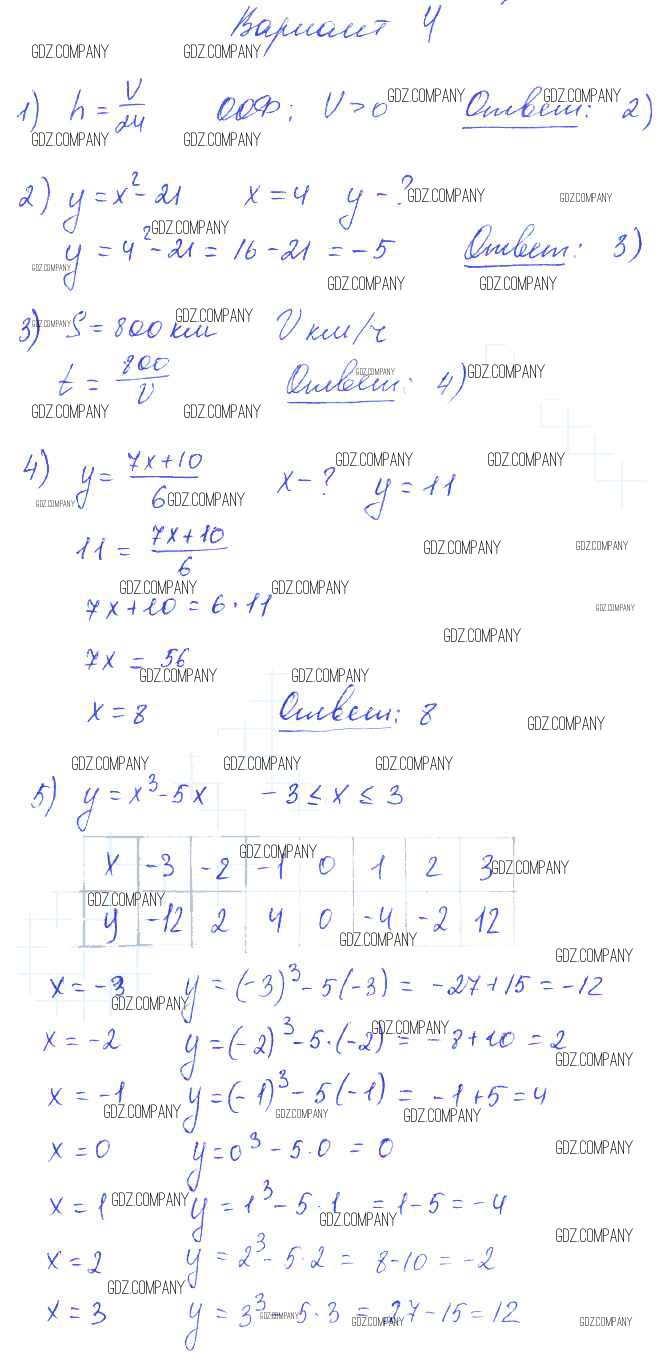 Вариант 4
GDZ.COMPANY GDZ.COMPANY
1) h = V/24 ООФ: V > 0 GDZ.COMPANY Ответ: 2) GDZ.COMPANY
GDZ.COMPANY GDZ.COMPANY
2) y = x² - 21 x = 4 y - ? GDZ.COMPANY GDZ.COMPANY
GDZ.COMPANY
y = 4² - 21 = 16 - 21 = -5 Ответ: 3)
GDZ.COMPANY GDZ.COMPANY GDZ.COMPANY
3) S = 800 км V км/ч GDZ.COMPANY GDZ.COMPANY
t = 800/V Ответ: 4) GDZ.COMPANY GDZ.COMPANY
GDZ.COMPANY GDZ.COMPANY
4) y = (7x+10)/6 x - ? y = 11 GDZ.COMPANY GDZ.COMPANY
GDZ.COMPANY GDZ.COMPANY
11 = (7x+10)/6 GDZ.COMPANY GDZ.COMPANY
GDZ.COMPANY GDZ.COMPANY
7x+10 = 6·11 GDZ.COMPANY
GDZ.COMPANY
7x = 56
GDZ.COMPANY GDZ.COMPANY
x = 8 Ответ: 8 GDZ.COMPANY
GDZ.COMPANY GDZ.COMPANY GDZ.COMPANY
5) y = x³ - 5x -3 ≤ x ≤ 3
GDZ.COMPANY
x -3 -2 -1 0 1 2 3 GDZ.COMPANY
GDZ.COMPANY
y -12 2 4 0 -4 -2 12
GDZ.COMPANY
GDZ.COMPANY
x = -3 y = (-3)³ - 5(-3) = -27+15 = -12
GDZ.COMPANY
x = -2 y = (-2)³ - 5·(-2) = -8+10 = 2 GDZ.COMPANY
GDZ.COMPANY
x = -1 y = (-1)³ - 5(-1) = -1+5 = 4
GDZ.COMPANY GDZ.COMPANY GDZ.COMPANY
x = 0 y = 0³ - 5·0 = 0 GDZ.COMPANY
x = 1 GDZ.COMPANY y = 1³ - 5·1 = 1-5 = -4
GDZ.COMPANY GDZ.COMPANY
x = 2 y = 2³ - 5·2 = 8-10 = -2
GDZ.COMPANY
x = 3 y = 3³ - 5·3 = 27-15 = 12
GDZ.COMPANY GDZ.COMPANY GDZ.COMPANY